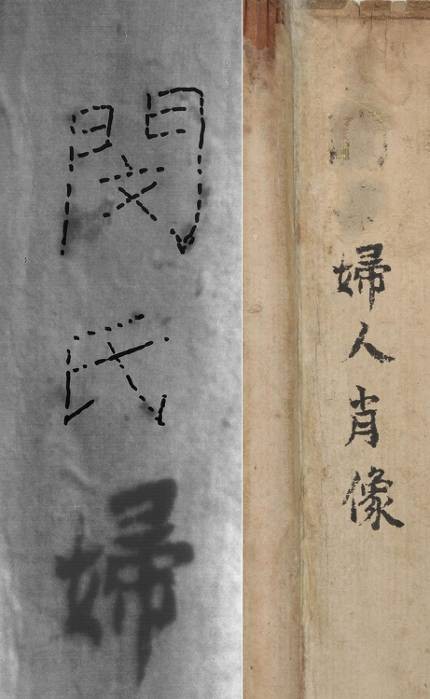 閔氏婦
婦人肖像